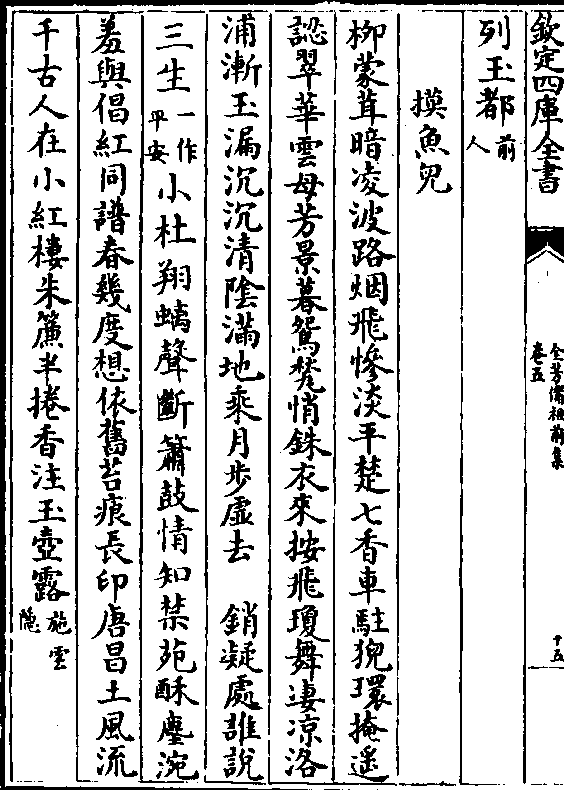 欽定四庫全書
全芳備祖前集
卷五
十五
列玉都前人
摸魚兒
柳蒙茸暗凌波路烟飛慘淡平楚七香車駐猊環掩遥
認翠華雲母芳景暮鴛甃悄銖衣來按飛瓊舞凄凉洛
浦漸玉漏沉沉清陰滿地乘月步虛去 銷凝處誰說
三生一作平安小杜翔螭聲斷簫鼓情知禁苑酥塵涴
羞與倡紅同譜春幾度想依舊苔痕長印唐昌土風流
千古人在小紅樓朱簾半捲香注玉壺露施雲隱